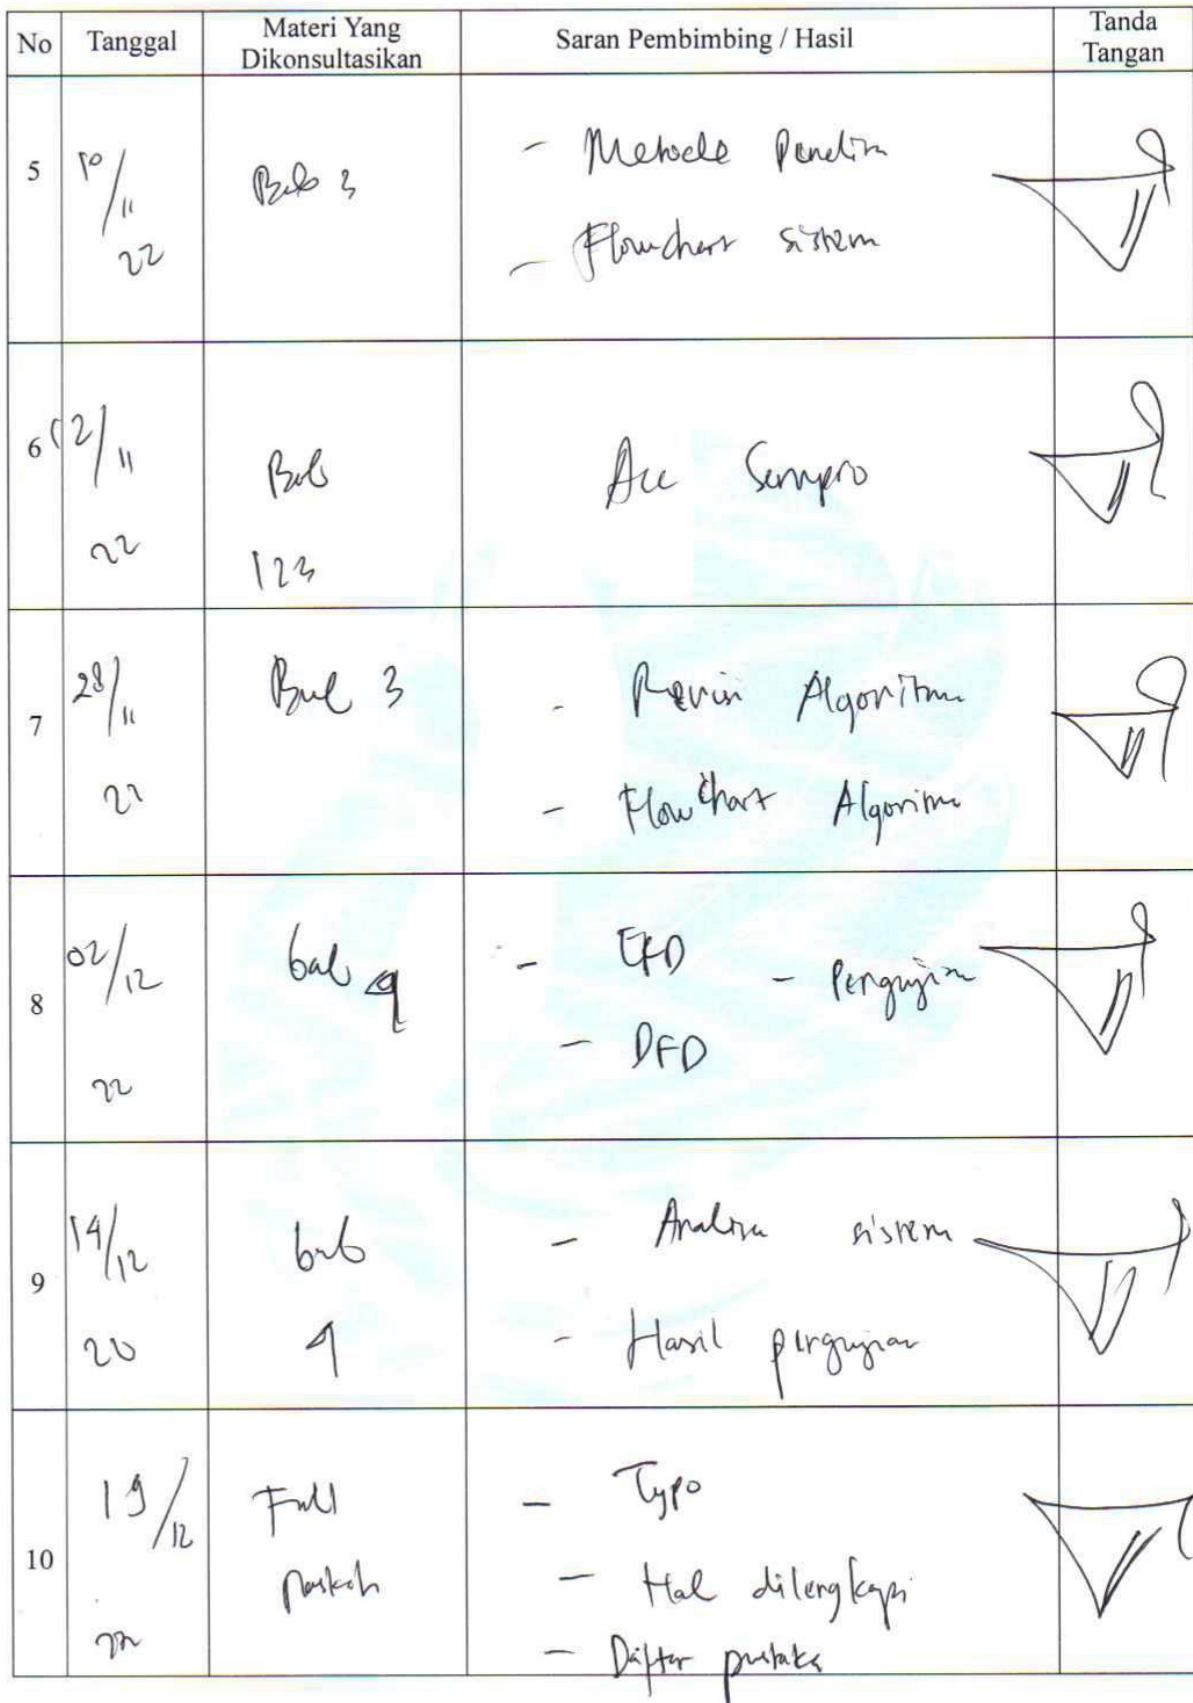 No Tanggal Materi Yang Dikonsultasikan Saran Pembimbing / Hasil Tanda Tangan
5 10/11 22 Bab 3
- Metode Penelitn
- Flowchart sistem
6 12/11 22 Bab 123 Acc Sempro
7 28/11 22 Bab 3
- Revisi Algoritma
- Flowchart Algoritma
8 02/12 22 bab 4
- ERD - Pengujian
- DFD
9 14/12 20 bab 4
- Analisa sistem
- Hasil pengujian
10 19/12 22 Full naskah
- Typo
- Hal dilengkapi
- Daftar pustaka